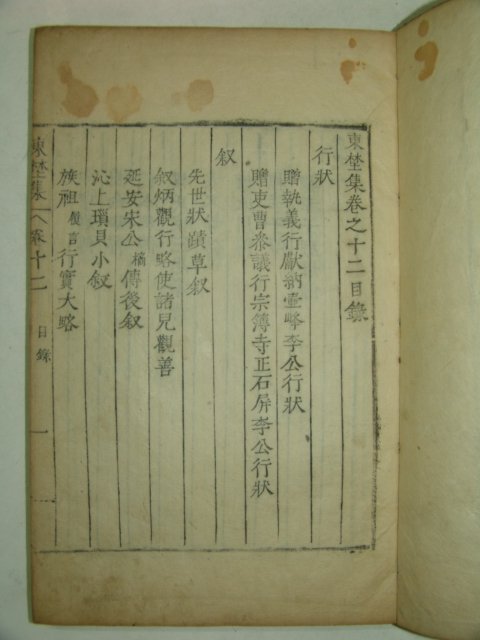 東埜集卷之十二目錄
行狀
贈執義行獻納壺峰李公行狀
贈吏曹參議行宗簿寺正石屏李公行狀
叙
先世狀蹟草叙
叙炳觀行略使諸兒觀善
延安宋公橘傳後叙
沁上瑣貝小叙
族祖儗言行實大略
東埜集 卷十二 目錄 一